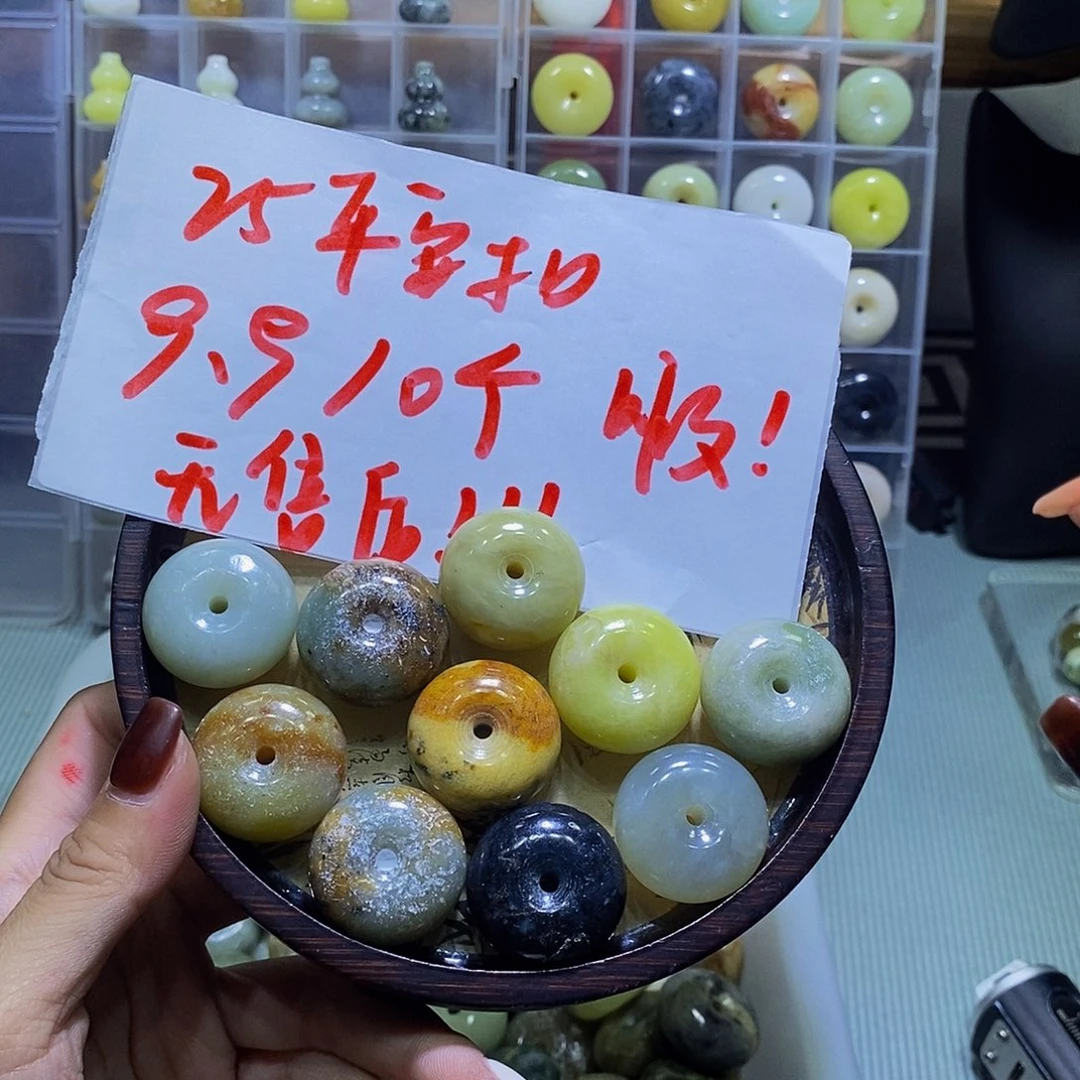 25平安扣
9.9 10个 收!
无售后!!!